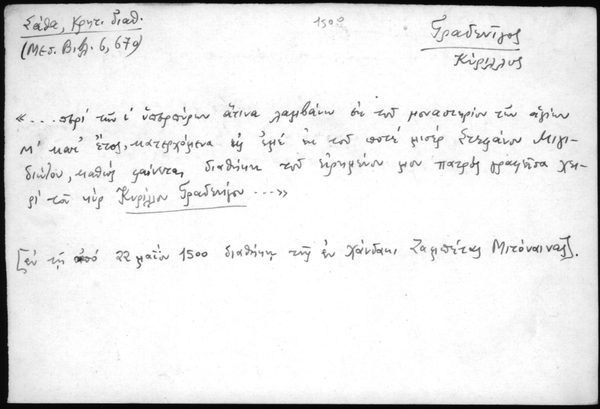 Σάθα, Κρητ. διαθ.
(Μεσ. Βιβλ. 6, 679)
1500
Γραδενῖγος
Κύριλλος
«....περί τῶν ι΄ ὑπερπύρων ἅτινα λαμβάνω ἐκ τοῦ μοναστηρίου τῶν ἁγίων
Μ΄ κατ' ἔτος, κατερχόμενα εἰς ἐμέ ἐκ τοῦ ποτέ μισέρ Στεφάνου
καθώς φαίνεται διαθήκη τοῦ εἰρημένου μου πατρός γραφεῖσα χει-
ρί τοῦ κύρ Κυρίλλου Γραδενίγου ....»
[ἐν τῇ ἀπό 22 μαΐου 1500 διαθήκῃ τῆς ἐν Χάνδακι Ζαμπέτας].